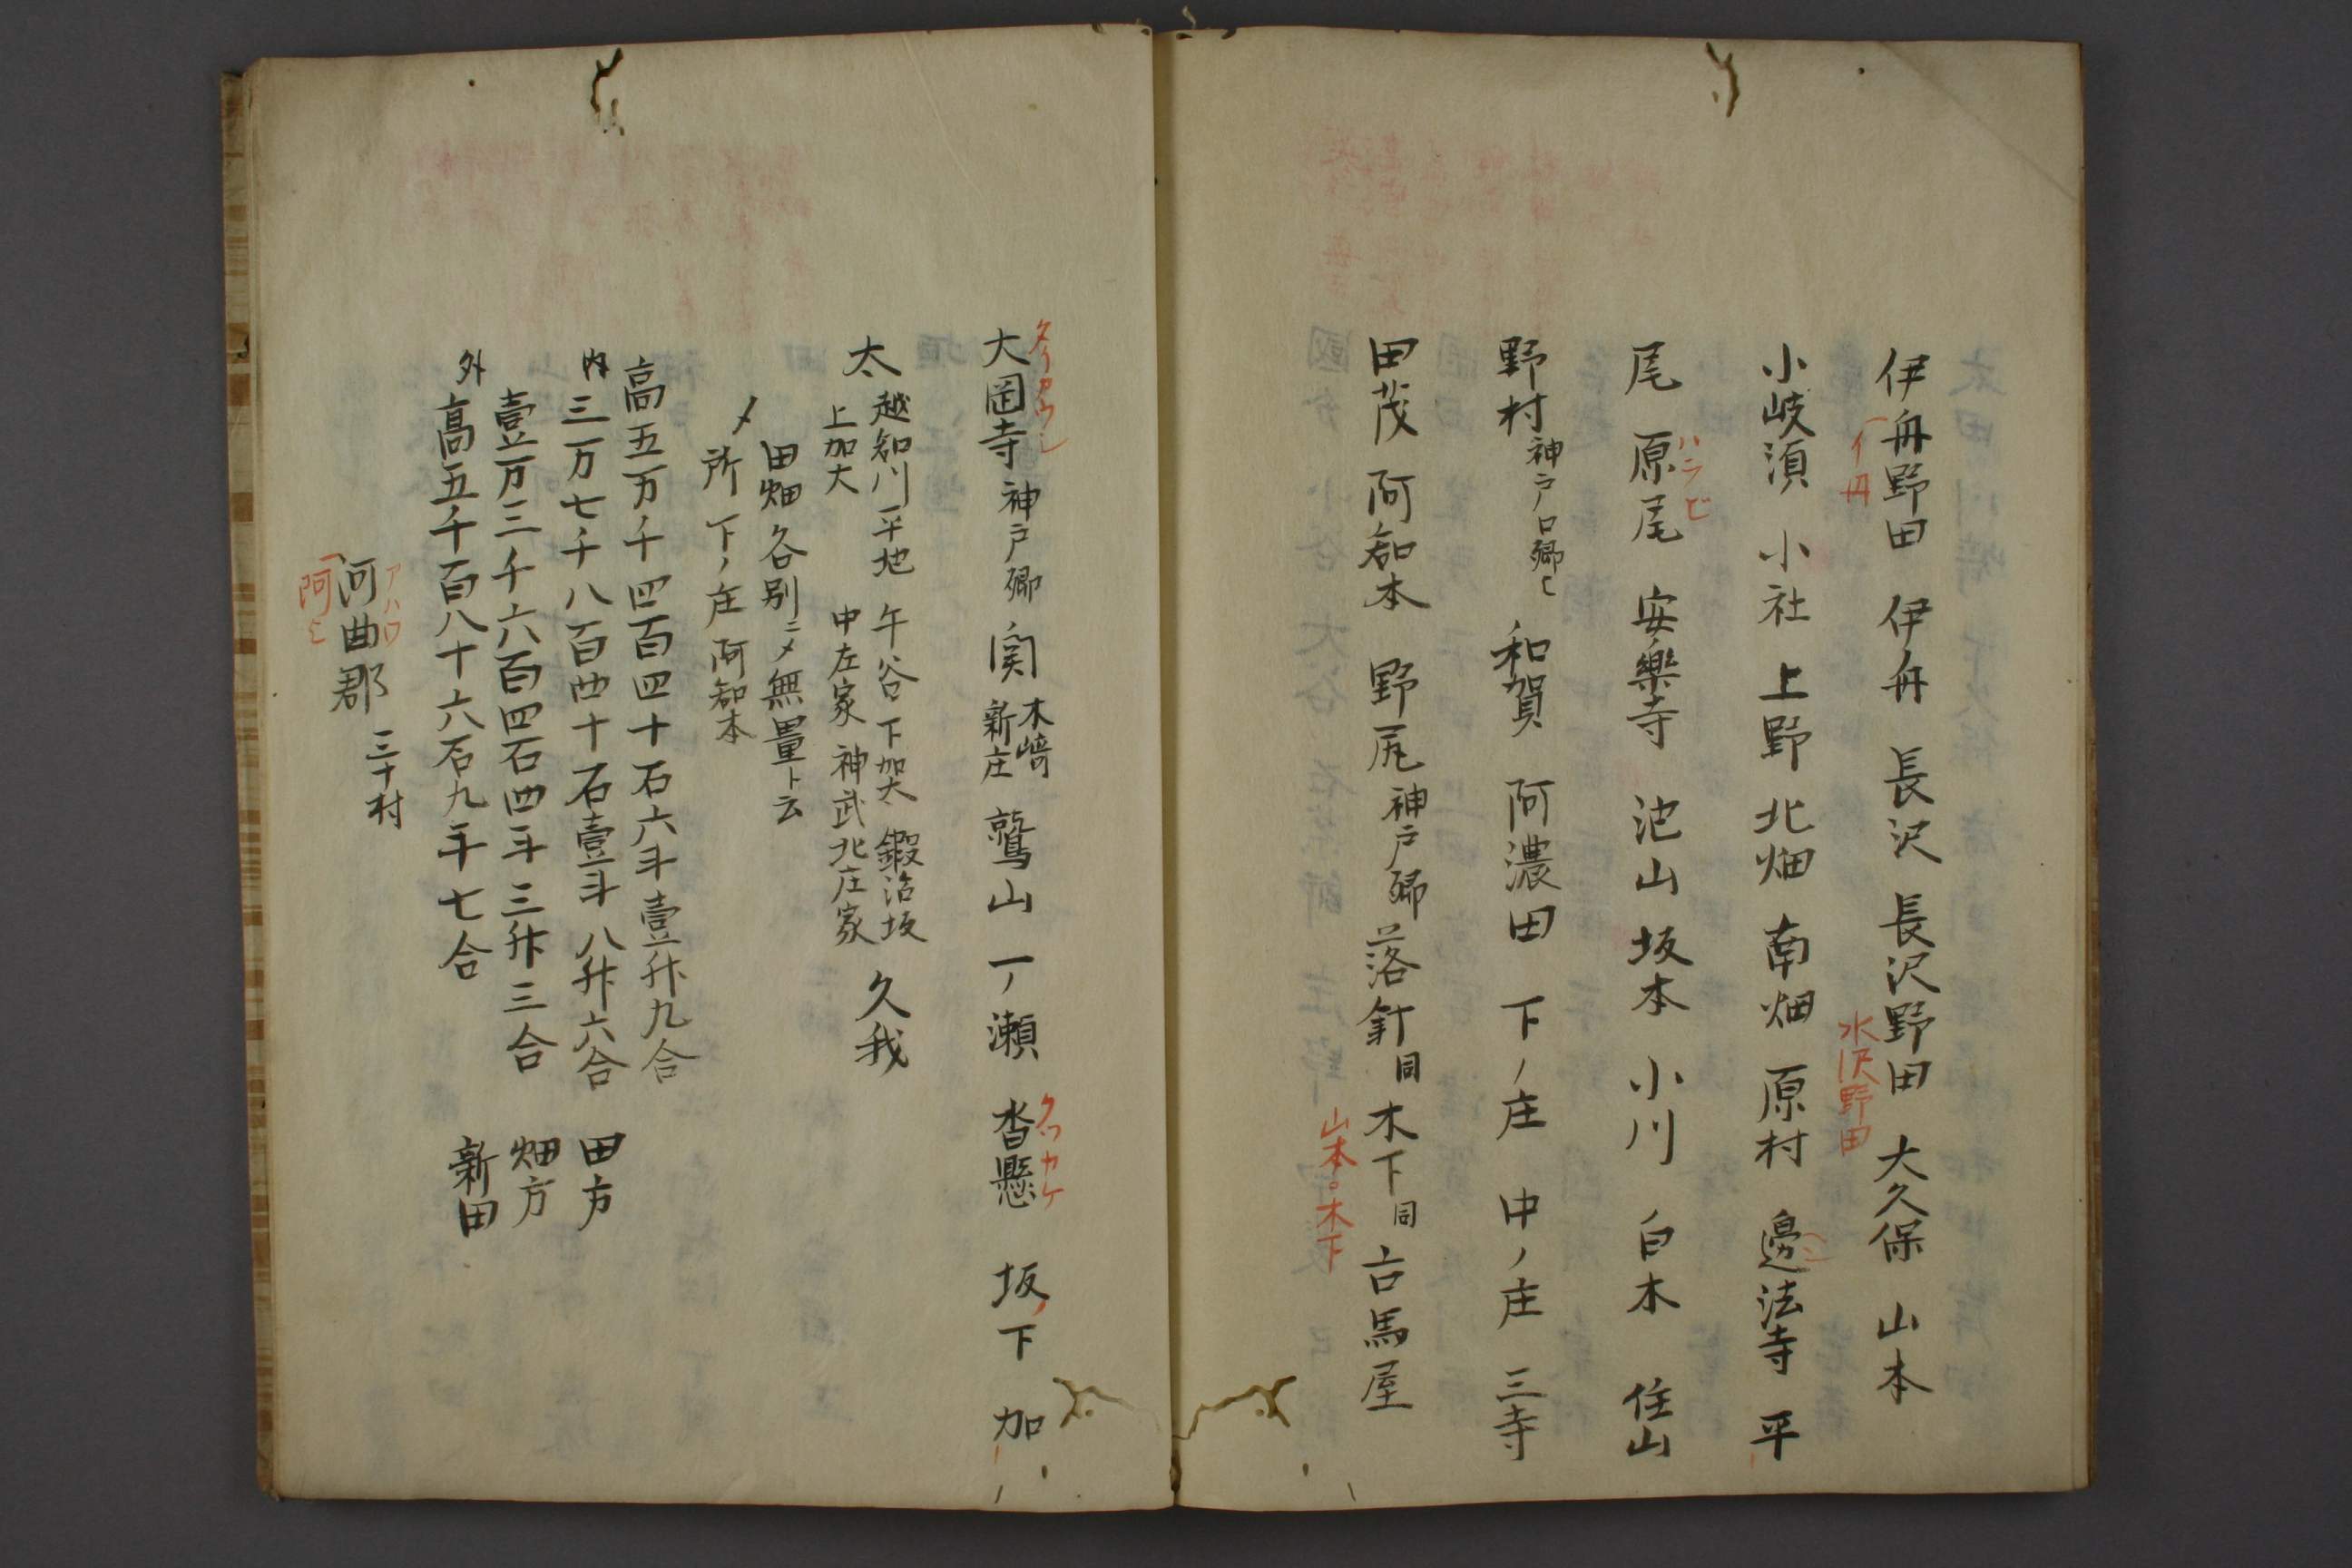 伊舟野田 伊舟 長沢 長沢野田 大久保 山本
イ舟
水沢野田
小岐須 小社 上野 北畑 南畑 原村 邊法寺 平
ヘン
尾 原尾 安樂寺 池山 坂本 小川 白木 住山
ハラビ
野村 神戸口郷ヒ 和賀 阿濃田 下ノ庄 中ノ庄 三寺
田茂 阿知本 野尻 神戸郷 落針 同 木下 同 古馬屋
山本。木下
大岡寺 神戸郷 関 木崎 新庄 鷲山 一ノ瀬 沓懸 坂ノ下 加
タイカウシ
クツカケ
太 越知川 平地 午谷 下加太 鍛冶坂
上加太 中左家 神武 北庄家 久我
田畑各別ニメ無量ト云
〆所 下ノ庄 阿知本
高五万千四百四十石六斗壹升九合
内 三万七千八百四十石壹斗八升六合 田方
壹万三千六百四石四斗三升三合 畑方
外 高五千百八十六石九斗七合 新田
河曲郡 三十村
アハワ
阿ヒ